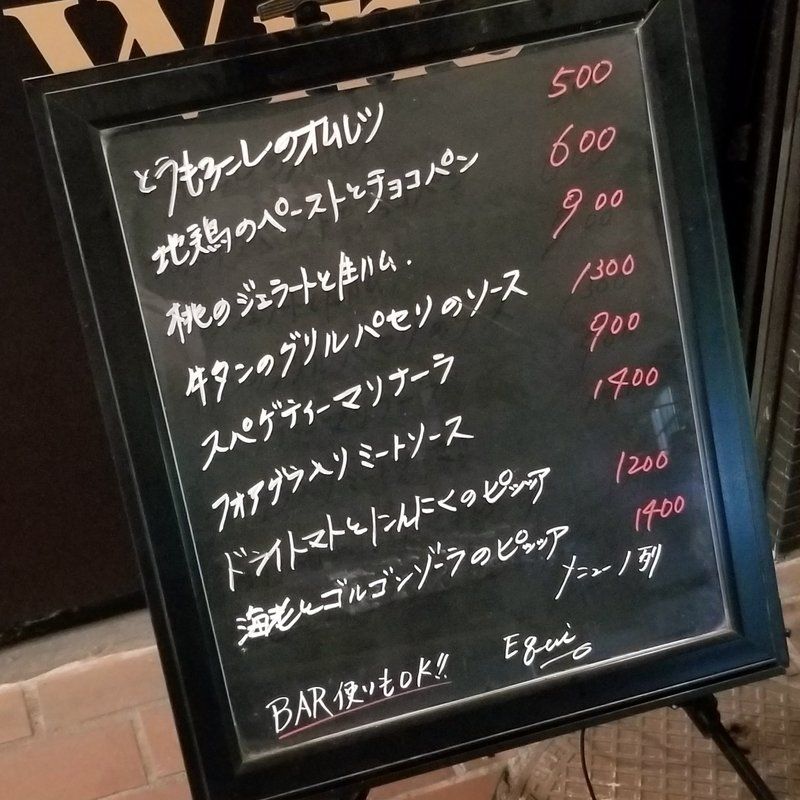 Wine
とうもろこしのオムレツ 500
地鶏のペーストとチョコパン 600
桃のジェラートと生ハム. 900
牛タンのグリルパセリのソース 1300
スパゲティーマリナーラ 900
フォアグラ入りミートソース 1400
ドライトマトとにんにくのピッツア 1200
海老とゴルゴンゾーラのピッツア 1400
メニュー1列
BAR使いもOK!!
Egui